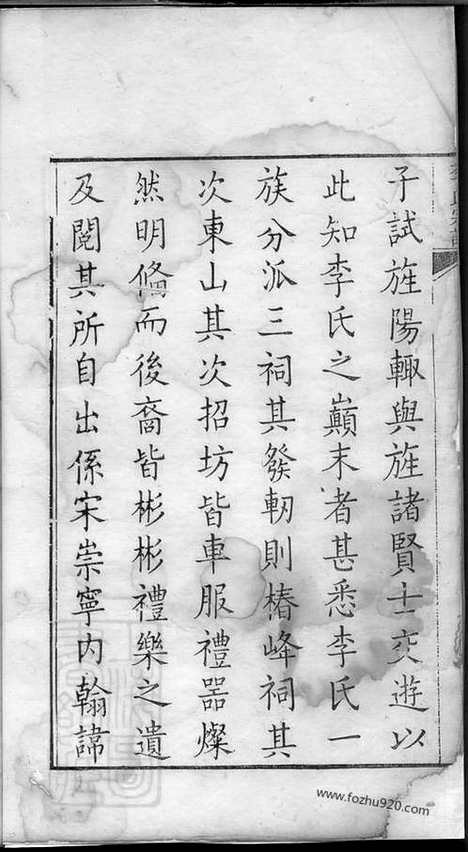 子試旌陽輙與旌諸賢士交遊以
此知李氏之巔末者甚悉李氏一
族分泒三祠其發軔則椿峰祠其
次東山其次招坊皆車服禮器燦
然明備而後裔皆彬彬禮樂之遺
及閱其所自出係宋崇寧内翰諱
www.fozhu920.com